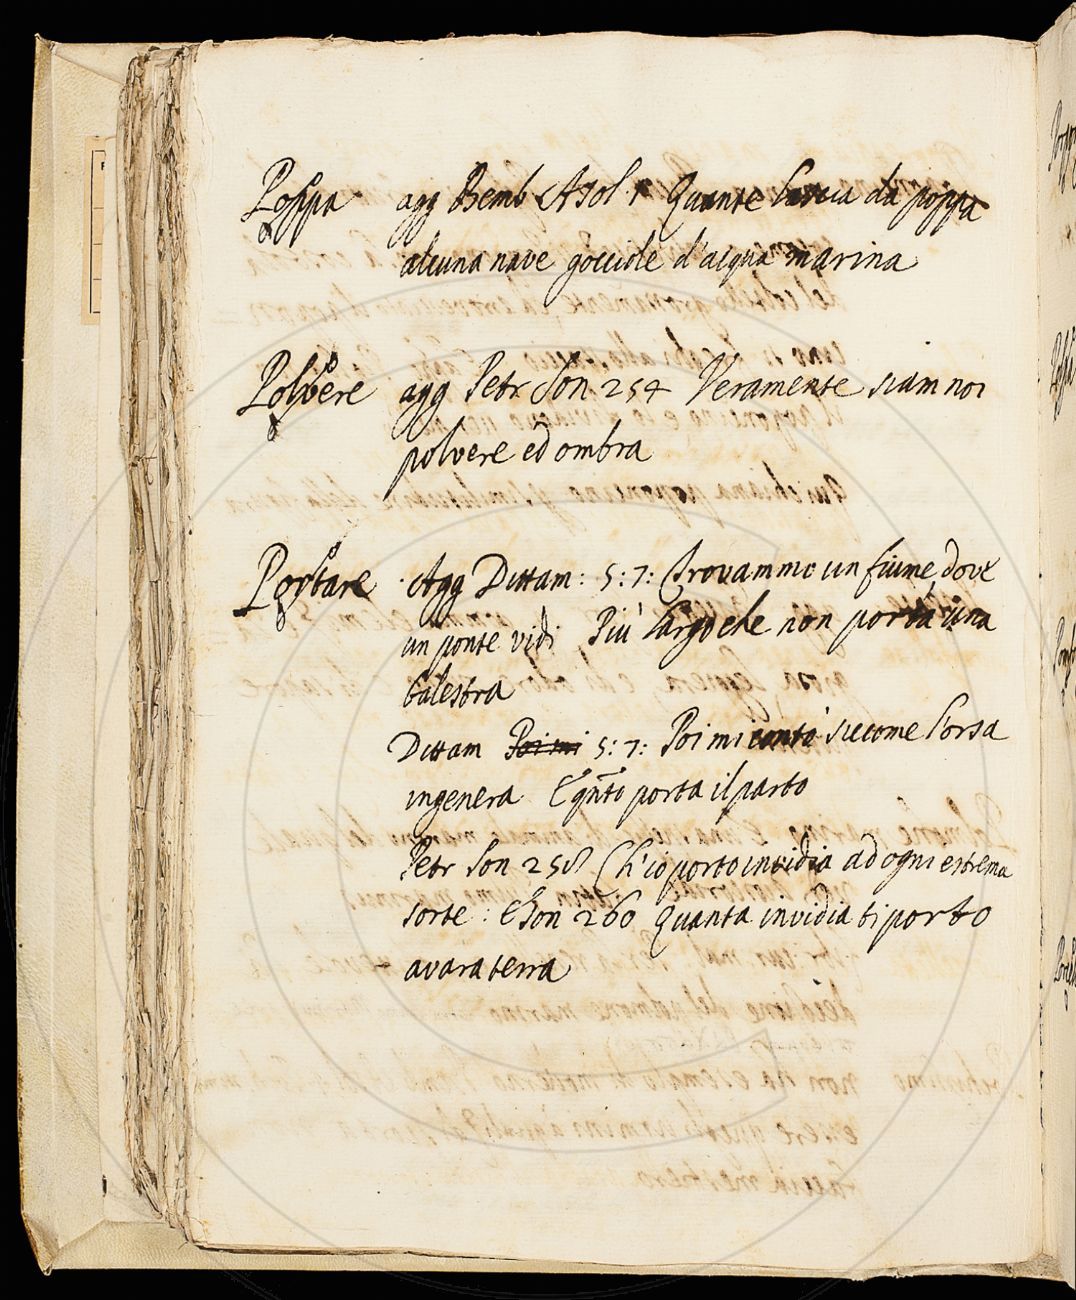 Poppa agg Bemb Asol 1 Quante lascia da poppa
alcuna nave gocciole d'acqua marina
Polvere agg Petr Son 254 Veramente siam noi
polvere ed ombra
Portare Agg Dittam: 5:7: Trovammo un fiume dove
un ponte vidi Più largo che non portà una
balestra
Dittam Poi mi 5:7: Poi mi contò siccome l'orsa
ingenera E qnto porta il parto
Petr Son 258 Ch'io porto invidia ad ogni estrema
sorte: E Son 260 Quanta invidia ti porto
avara terra